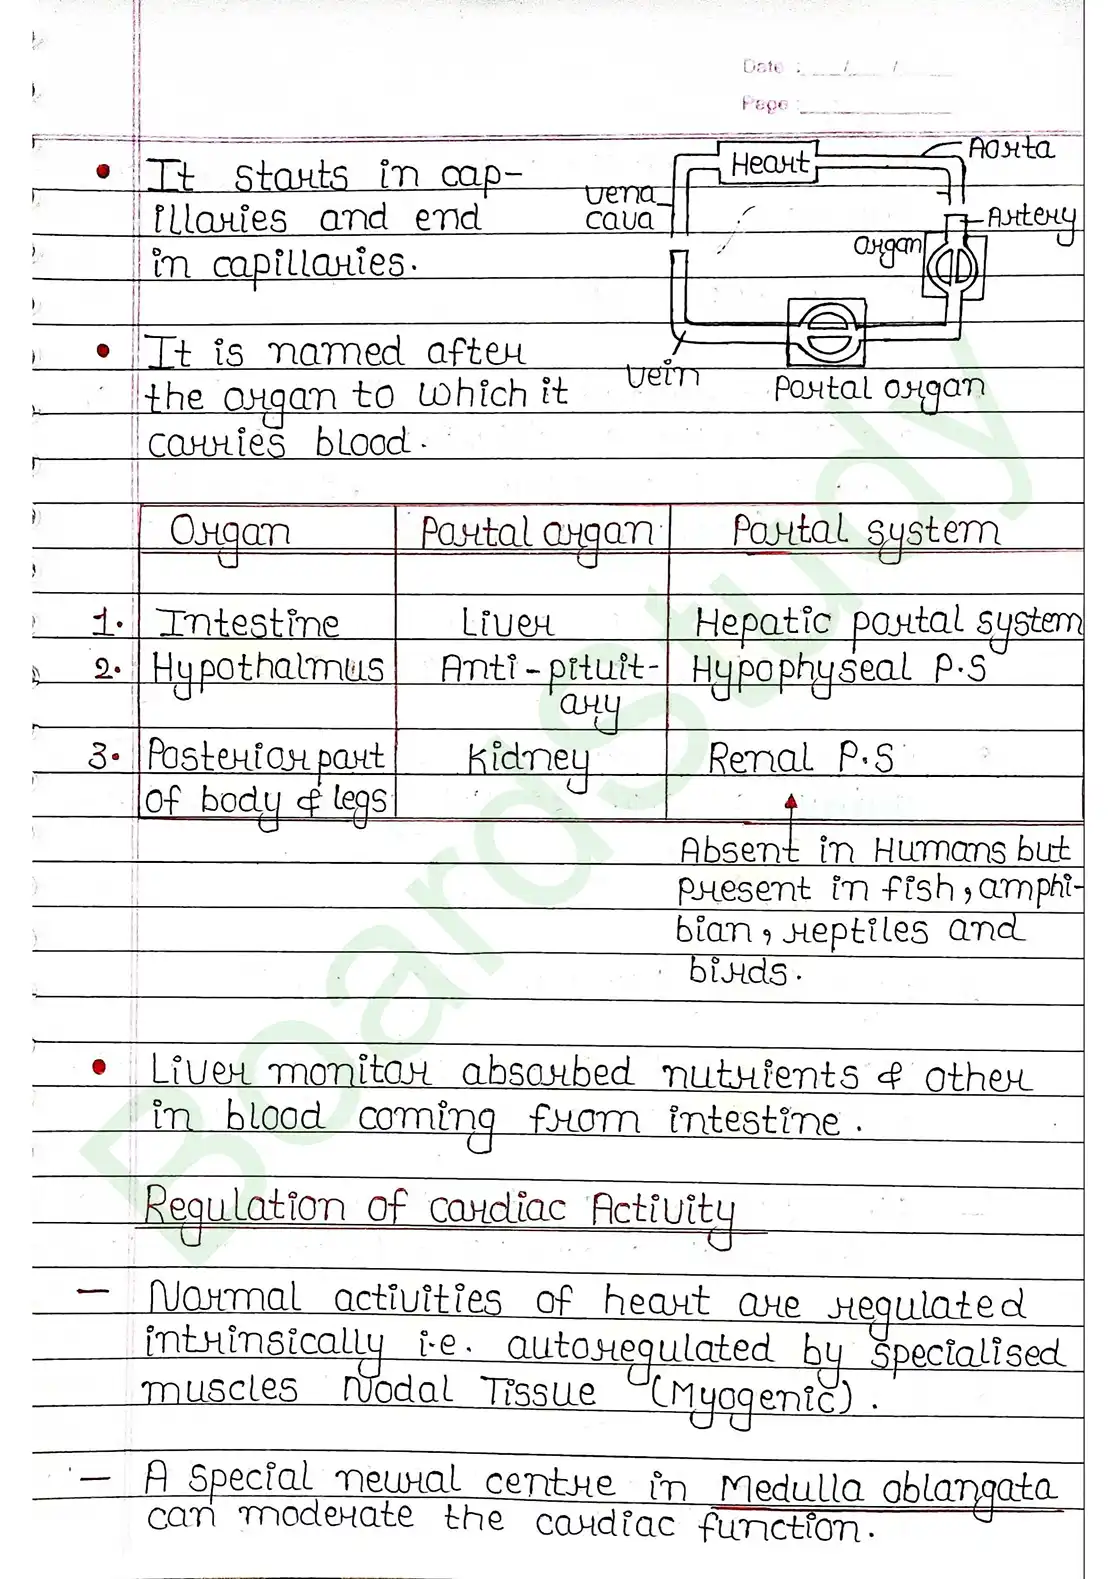 Date : ___/___/___
Page : ___
• It starts in cap-
illaries and end
in capillaries.
Heart
Aorta
vena
cava
Artery
organ
vein
Portal organ
• It is named after
the organ to which it
carries blood.
Organ Portal organ Portal system
1. Intestine Liver Hepatic portal system
2. Hypothalmus Anti-pituit- Hypophyseal P.S
ary
3. Posterior part Kidney Renal P.S
of body & legs
Absent in Humans but
present in fish, amphi-
bian, reptiles and
birds.
• Liver monitor absorbed nutrients & other
in blood coming from intestine.
Regulation of cardiac Activity
— Normal activities of heart are regulated
intrinsically i.e. autoregulated by specialised
muscles Nodal Tissue (Myogenic).
— A special neural centre in Medulla oblangata
can moderate the cardiac function.
BoardStudy